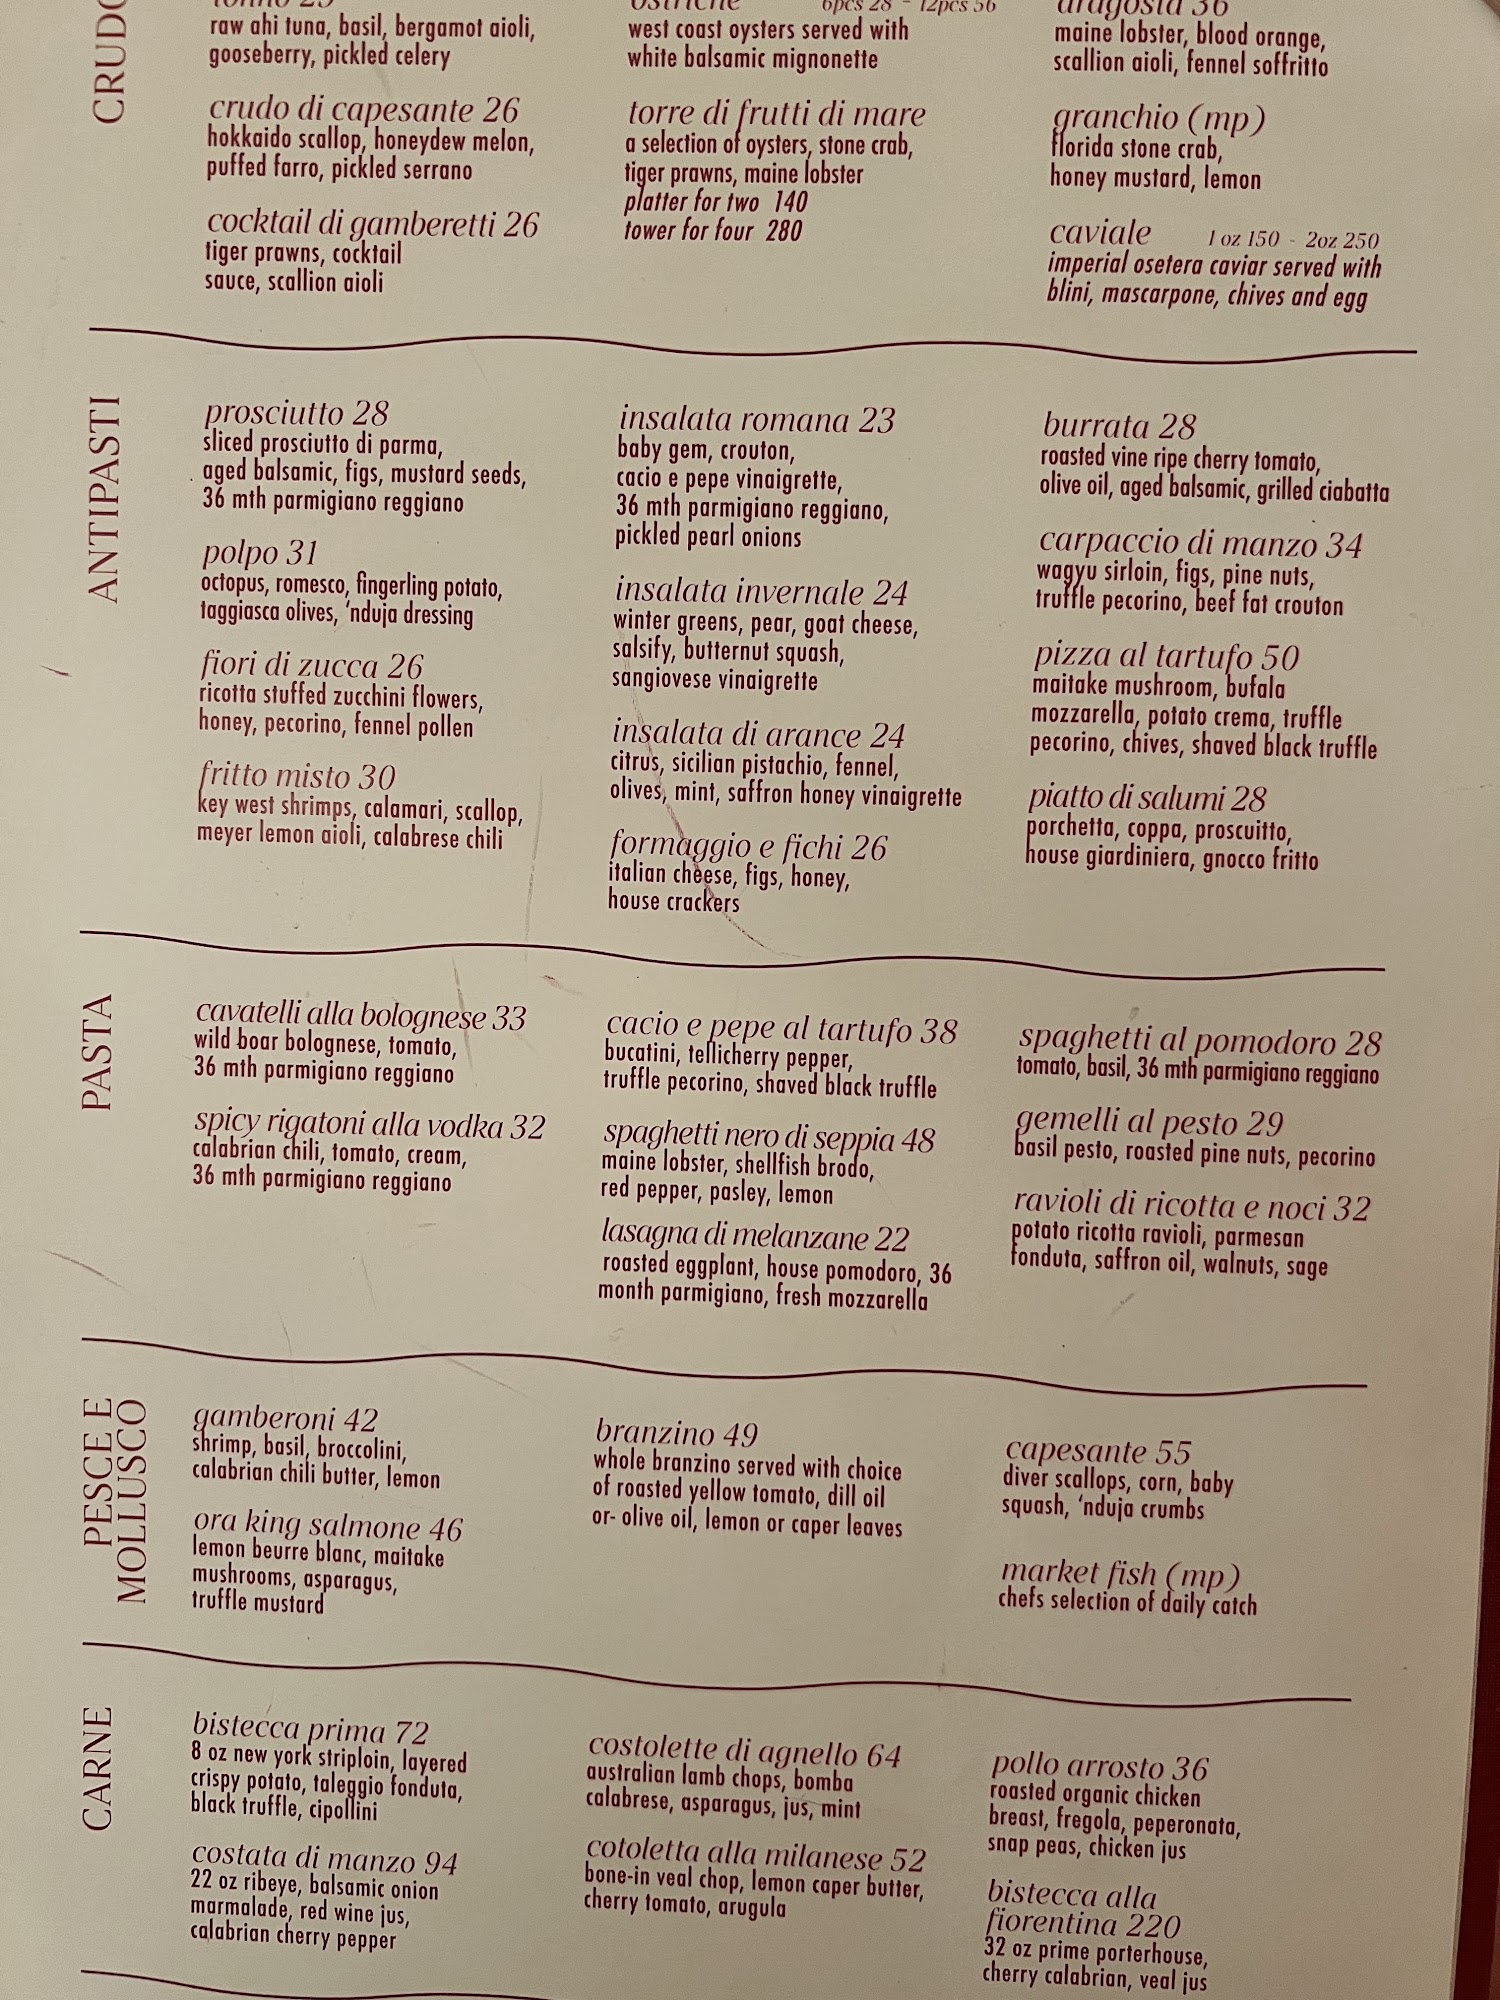 CRUDO
tonno 29
raw ahi tuna, basil, bergamot aioli,
gooseberry, pickled celery
crudo di capesante 26
hokkaido scallop, honeydew melon,
puffed farro, pickled serrano
cocktail di gamberetti 26
tiger prawns, cocktail
sauce, scallion aioli
ostriche 6pcs 28 - 12pcs 56
west coast oysters served with
white balsamic mignonette
torre di frutti di mare
a selection of oysters, stone crab,
tiger prawns, maine lobster
platter for two 140
tower for four 280
aragosta 36
maine lobster, blood orange,
scallion aioli, fennel soffritto
granchio (mp)
florida stone crab,
honey mustard, lemon
caviale 1 oz 150 - 2oz 250
imperial osetera caviar served with
blini, mascarpone, chives and egg
ANTIPASTI
prosciutto 28
sliced prosciutto di parma,
aged balsamic, figs, mustard seeds,
36 mth parmigiano reggiano
polpo 31
octopus, romesco, fingerling potato,
taggiasca olives, ‘nduja dressing
fiori di zucca 26
ricotta stuffed zucchini flowers,
honey, pecorino, fennel pollen
fritto misto 30
key west shrimps, calamari, scallop,
meyer lemon aioli, calabrese chili
insalata romana 23
baby gem, crouton,
cacio e pepe vinaigrette,
36 mth parmigiano reggiano,
pickled pearl onions
insalata invernale 24
winter greens, pear, goat cheese,
salsify, butternut squash,
sangiovese vinaigrette
insalata di arance 24
citrus, sicilian pistachio, fennel,
olives, mint, saffron honey vinaigrette
formaggio e fichi 26
italian cheese, figs, honey,
house crackers
burrata 28
roasted vine ripe cherry tomato,
olive oil, aged balsamic, grilled ciabatta
carpaccio di manzo 34
wagyu sirloin, figs, pine nuts,
truffle pecorino, beef fat crouton
pizza al tartufo 50
maitake mushroom, bufala
mozzarella, potato crema, truffle
pecorino, chives, shaved black truffle
piatto di salumi 28
porchetta, coppa, proscuitto,
house giardiniera, gnocco fritto
PASTA
cavatelli alla bolognese 33
wild boar bolognese, tomato,
36 mth parmigiano reggiano
spicy rigatoni alla vodka 32
calabrian chili, tomato, cream,
36 mth parmigiano reggiano
cacio e pepe al tartufo 38
bucatini, tellicherry pepper,
truffle pecorino, shaved black truffle
spaghetti nero di seppia 48
maine lobster, shellfish brodo,
red pepper, pasley, lemon
lasagna di melanzane 22
roasted eggplant, house pomodoro, 36
month parmigiano, fresh mozzarella
spaghetti al pomodoro 28
tomato, basil, 36 mth parmigiano reggiano
gemelli al pesto 29
basil pesto, roasted pine nuts, pecorino
ravioli di ricotta e noci 32
potato ricotta ravioli, parmesan
fonduta, saffron oil, walnuts, sage
PESCE E
MOLLUSCO
gamberoni 42
shrimp, basil, broccolini,
calabrian chili butter, lemon
ora king salmone 46
lemon beurre blanc, maitake
mushrooms, asparagus,
truffle mustard
branzino 49
whole branzino served with choice
of roasted yellow tomato, dill oil
or- olive oil, lemon or caper leaves
capesante 55
diver scallops, corn, baby
squash, ‘nduja crumbs
market fish (mp)
chefs selection of daily catch
CARNE
bistecca prima 72
8 oz new york striploin, layered
crispy potato, taleggio fonduta,
black truffle, cipollini
costata di manzo 94
22 oz ribeye, balsamic onion
marmalade, red wine jus,
calabrian cherry pepper
costolette di agnello 64
australian lamb chops, bomba
calabrese, asparagus, jus, mint
cotoletta alla milanese 52
bone-in veal chop, lemon caper butter,
cherry tomato, arugula
pollo arrosto 36
roasted organic chicken
breast, fregola, peperonata,
snap peas, chicken jus
bistecca alla
fiorentina 220
32 oz prime porterhouse,
cherry calabrian, veal jus